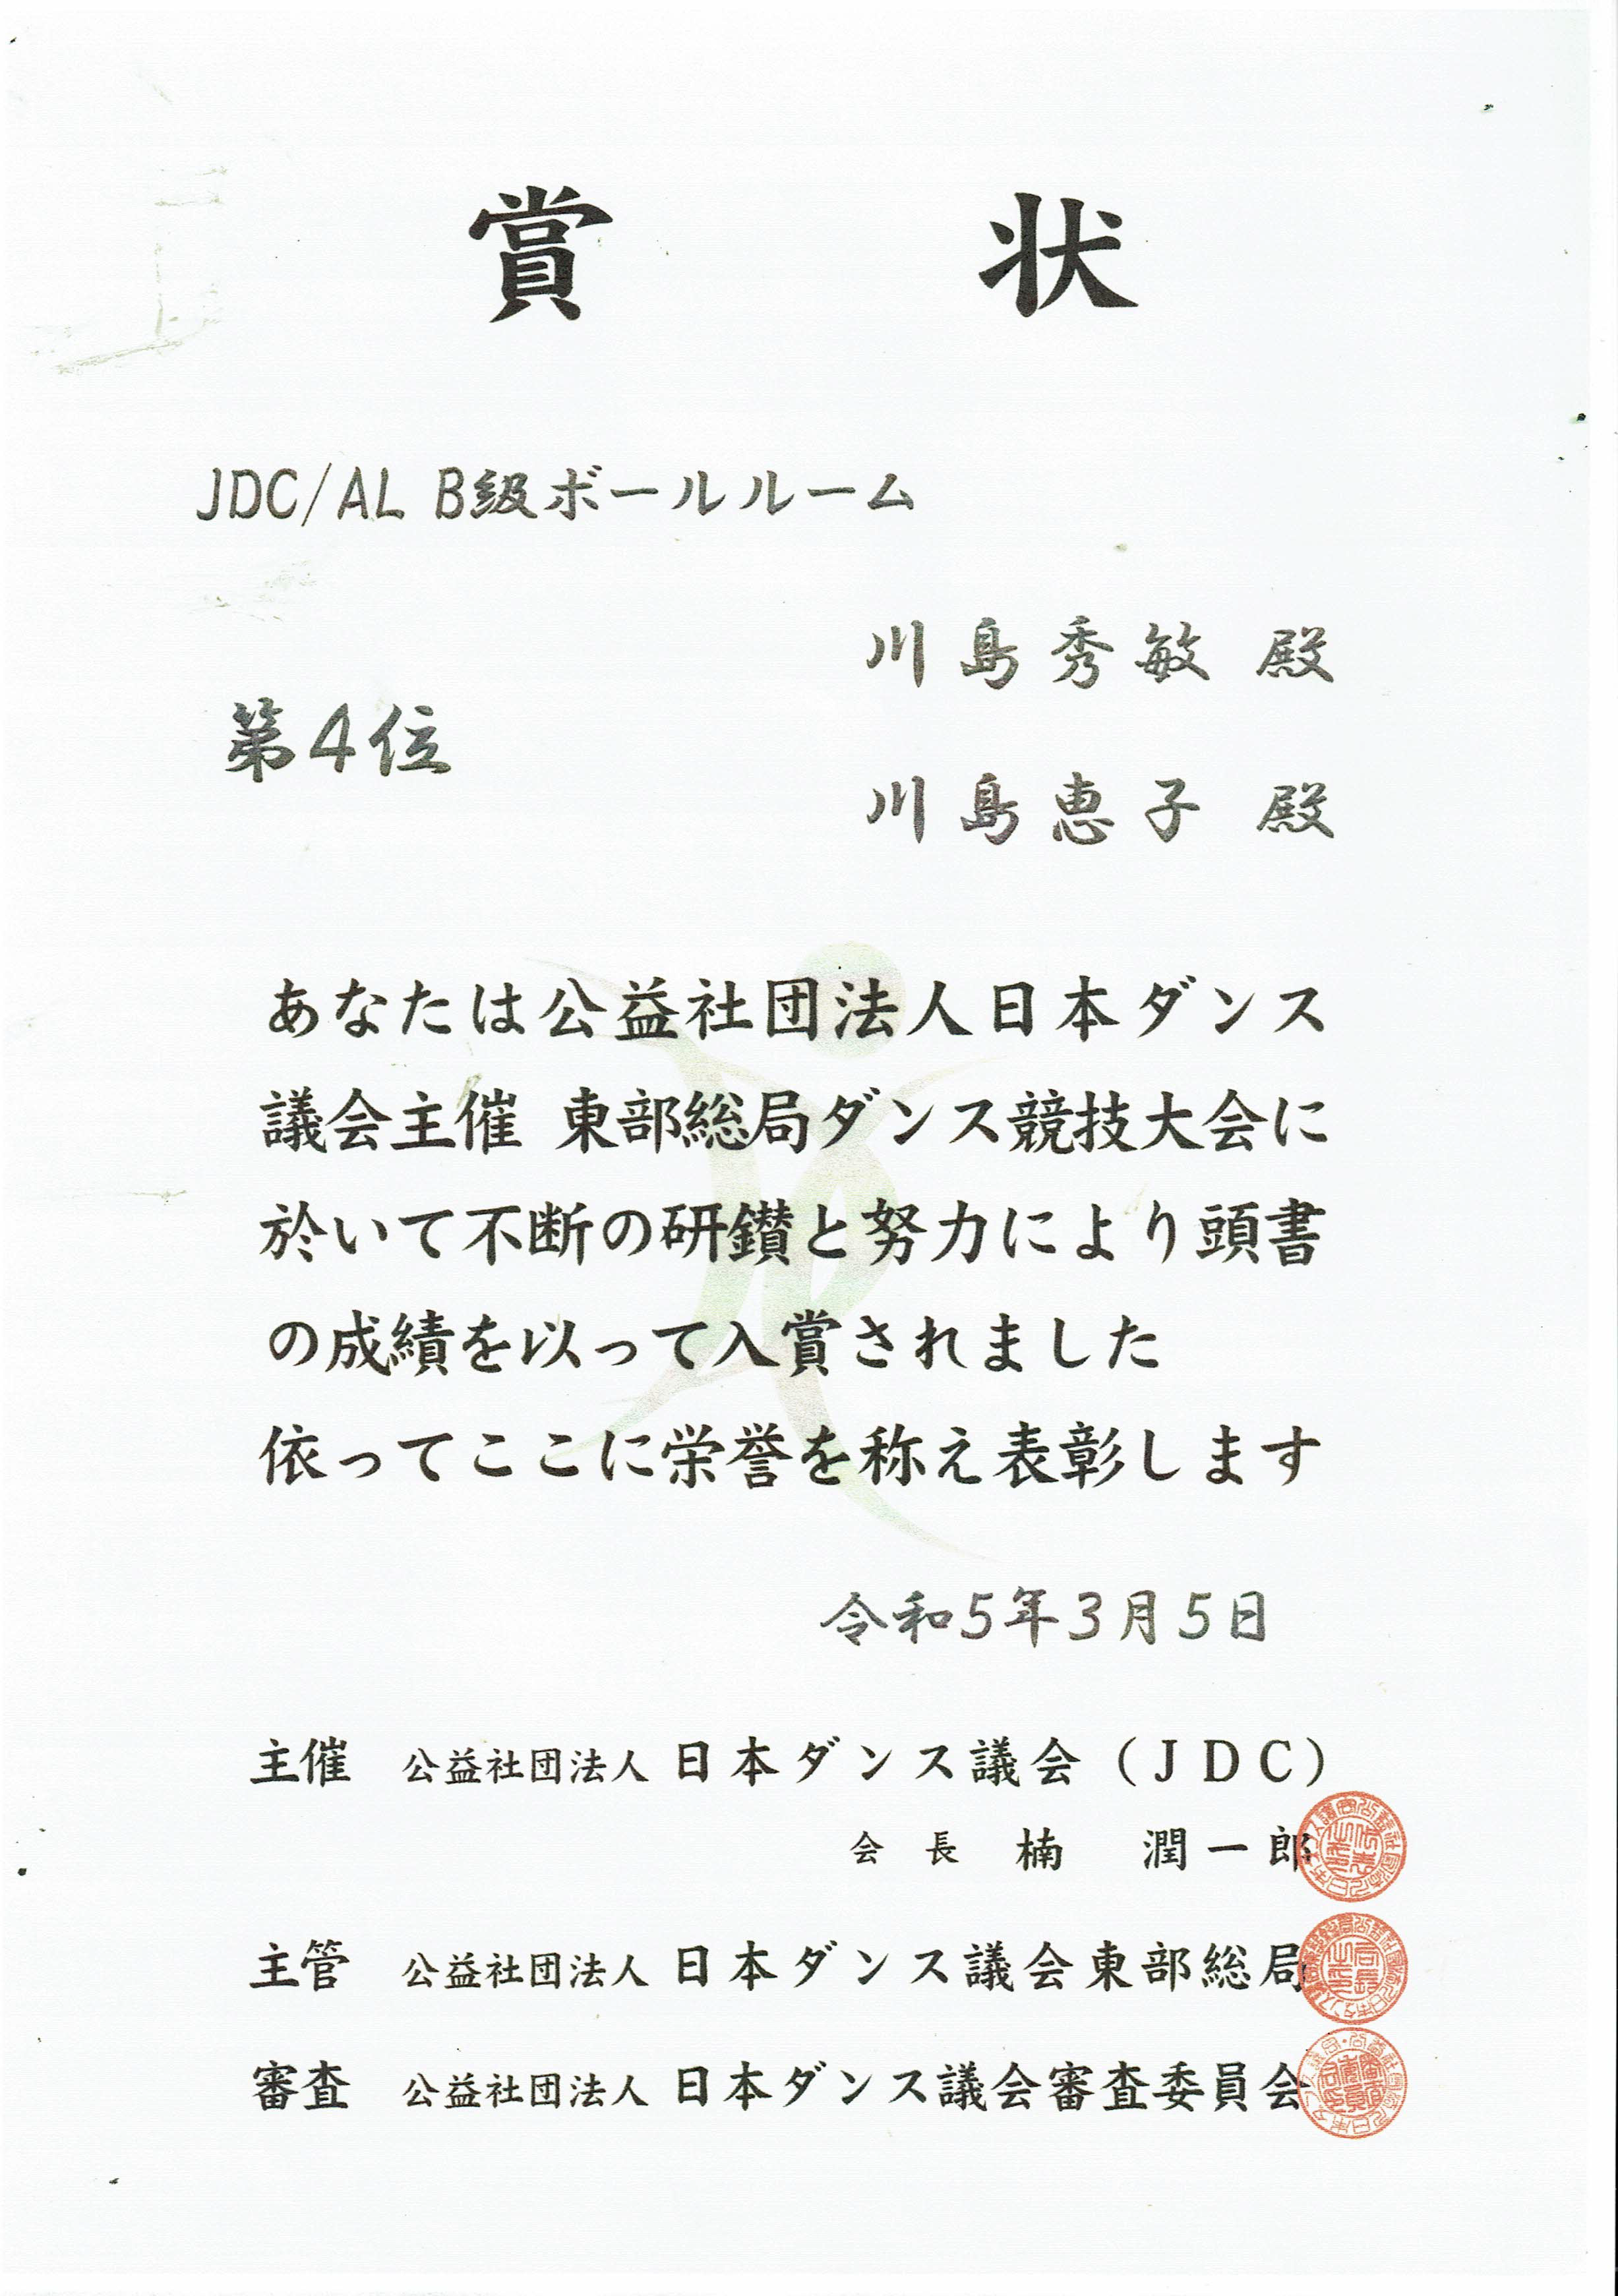 賞状
JDC/AL B級ボールルーム
川島秀敏 殿
第4位
川島恵子 殿
あなたは公益社団法人日本ダンス
議会主催 東部総局ダンス競技大会に
於いて不断の研鑚と努力により頭書
の成績を以って入賞されました
依ってここに栄誉を称え表彰します
令和5年3月5日
主催 公益社団法人 日本ダンス議会（JDC）
会長 楠 潤一郎
主管 公益社団法人 日本ダンス議会東部総局
審査 公益社団法人 日本ダンス議会審査委員会